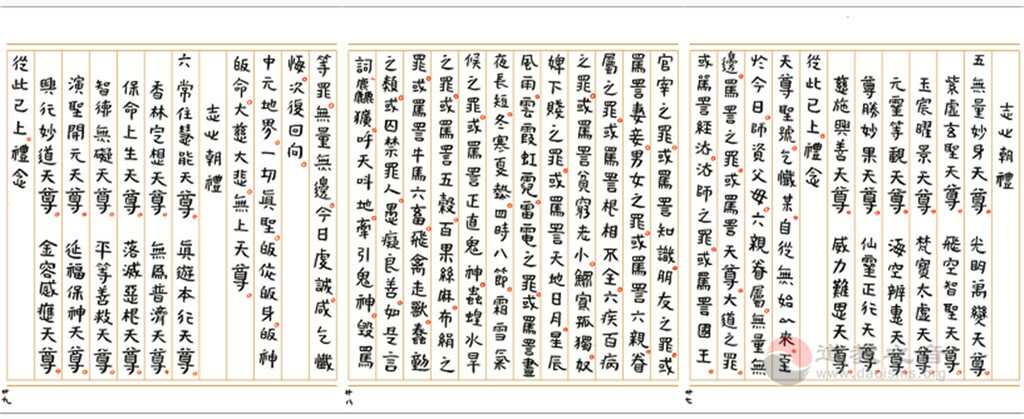 志心朝禮
五 無量妙身天尊 光明萬變天尊
紫虛玄聖天尊 飛空智聖天尊
玉宸曜景天尊 梵寶太虛天尊
元靈等觀天尊 遙空辨惠天尊
尊勝妙果天尊 仙靈正行天尊
慈施興善天尊 威力難思天尊
從此已上禮念
天尊聖號乞懺某自從無始以來至
於今日師資父母六親眷屬無量無
邊罵詈之罪或罵詈天尊大道之罪
或罵詈經法法師之罪或罵詈國王
官宰之罪或罵詈知識朋友之罪或
罵詈妻妾男女之罪或罵詈六親眷
屬之罪或罵詈根相不全六疾百病
之罪或罵詈貧窮老小鰥寡孤獨奴
婢下賤之罪或罵詈天地日月星辰
風雨雲霞虹霓雷電之罪或罵詈晝
夜長短冬寒夏熱四時八節霜雪氣
候之罪或罵詈正直鬼神蟲蝗水旱
之罪或罵詈五穀百果絲麻布絹之
罪或罵詈牛馬六畜飛禽走獸蠢動
之類或囚禁罪人愚癡良善如是言
詞麤獷呼天叫地牽引鬼神毀罵
等罪無量無邊今日虔誠咸乞懺
悔次復回向
中元地界一切真聖皈依皈身皈神
皈命大慈大悲無上天尊
志心朝禮
六 常住慧能天尊 真遊本行天尊
香林定想天尊 無為普濟天尊
保命上生天尊 落滅惡根天尊
智德無礙天尊 平等善救天尊
演聖開元天尊 延福保神天尊
興行妙道天尊 金容感應天尊
從此已上禮念
道教之音
www.daoisms.org